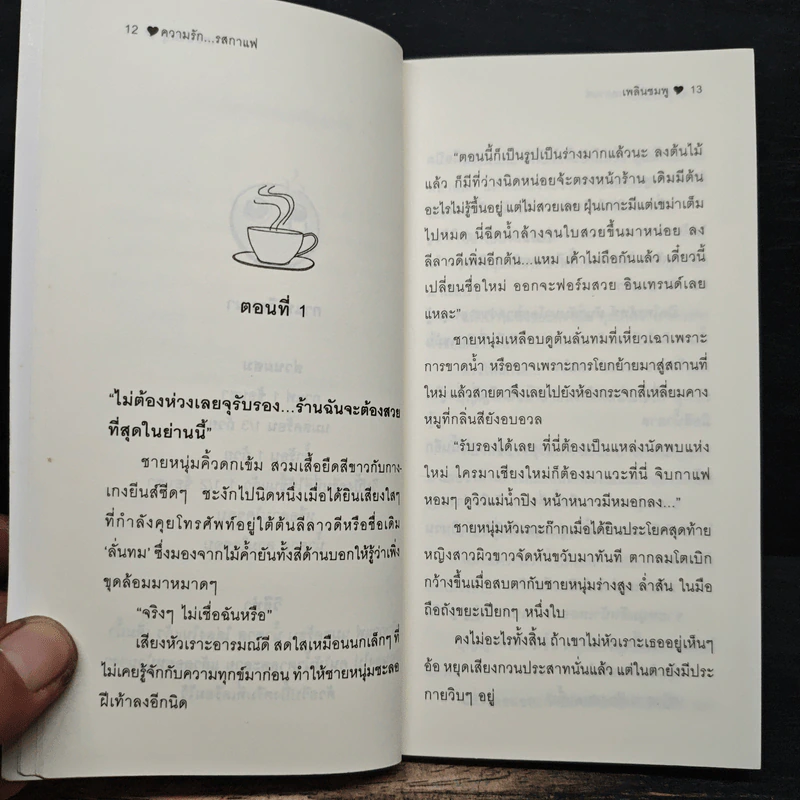 12 ♥ ความรัก...รสกาแฟ
ตอนที่ 1
“ไม่ต้องห่วงเลยจุรับรอง...ร้านฉันจะต้องสวย
ที่สุดในย่านนี้”
ชายหนุ่มคิ้วดกเข้ม สวมเสื้อยืดสีขาวกับกาง-
เกงยีนส์ซีดๆ ชะงักไปนิดหนึ่งเมื่อได้ยินเสียงใสๆ
ที่กำลังคุยโทรศัพท์อยู่ใต้ต้นลีลาวดีหรือชื่อเดิม
‘ลั่นทม’ ซึ่งมองจากไม้ค้ำยันทั้งสี่ด้านบอกให้รู้ว่าเพิ่ง
ขุดล้อมมาหมาดๆ
“จริงๆ ไม่เชื่อฉันหรือ”
เสียงหัวเราะอารมณ์ดี สดใสเหมือนนกเล็กๆ ที่
ไม่เคยรู้จักกับความทุกข์มาก่อน ทำให้ชายหนุ่มชะลอ
ฝีเท้าลงอีกนิด
เพลินชมพู ♥ 13
“ตอนนี้ก็เป็นรูปเป็นร่างมากแล้วนะ ลงต้นไม้
แล้ว ก็มีที่ว่างนิดหน่อยจ้ะตรงหน้าร้าน เดิมมีต้น
อะไรไม่รู้ขึ้นอยู่ แต่ไม่สวยเลย ฝุ่นเกาะมีแต่เขม่าเต็ม
ไปหมด นี่ฉีดน้ำล้างจนใบสวยขึ้นมาหน่อย ลง
ลีลาวดีเพิ่มอีกต้น...แหม เค้าไม่ถือกันแล้ว เดี๋ยวนี้
เปลี่ยนชื่อใหม่ ออกจะฟอร์มสวย อินเทรนด์เลย
แหละ”
ชายหนุ่มเหลือบดูต้นลั่นทมที่เหี่ยวเฉาเพราะ
การขาดน้ำ หรืออาจเพราะการโยกย้ายมาสู่สถานที่
ใหม่ แล้วสายตาจึงเลยไปยังห้องกระจกสี่เหลี่ยมคาง
หมูที่กลิ่นสียังอบอวล
“รับรองได้เลย ที่นี่ต้องเป็นแหล่งนัดพบแห่ง
ใหม่ ใครมาเชียงใหม่ก็ต้องมาแวะที่นี่ จิบกาแฟ
หอมๆ ดูวิวแม่น้ำปิง หน้าหนาวมีหมอกลง...”
ชายหนุ่มหัวเราะก๊ากเมื่อได้ยินประโยคสุดท้าย
หญิงสาวผิวขาวจัดหันขวับมาทันที ตากลมโตเบิก
กว้างขึ้นเมื่อสบตากับชายหนุ่มร่างสูง ล่ำสัน ในมือ
ถือถังขยะเปียกๆ หนึ่งใบ
คงไม่อะไรทั้งสิ้น ถ้าเขาไม่หัวเราะเธออยู่เห็นๆ
อ้อ หยุดเสียงกวนประสาทนั่นแล้ว แต่ในตายังมีประ
กายวิบๆ อยู่